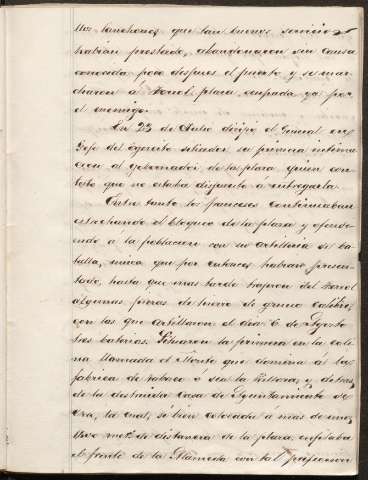 lanchones que tan buenos servicios
habian prestado, abandonaron sin causa
conocida poco despues el puerto y se mar-
charon á Ferrol, plaza ocupada ya por
el enemigo.
En 23 de Julio dirijió el General en
Jefe del Ejército sitiador su primera intima-
cion al gobernador de la plaza quien con-
testó que no estaba dispuesto á entregarla.
Entre tanto los franceses continuaban
estrechando el bloqueo de la plaza y ofendi-
endo á la poblacion con su artilleria de ba-
talla, unica que por entonces habian presen-
tado, hasta que mas tarde trajeron del Ferrol
algunas piezas de hierro de grueso calibre,
con las que artillaron el dia 6 de Agosto
tres baterias. Situaron la primera en la coli-
na llamada el Monte que domina á la
fabrica de tabaco ó sea la Palloza, y detras
de la destruida Casa de Ayuntamiento de
Oza, la cual, si bien colocada á mas de
mets. de distancia de la plaza enfilaba
el frente de la Alameda con tal